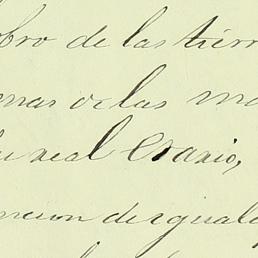 bro de las tierr
mas de las m
real Erario,
ncion de iguala